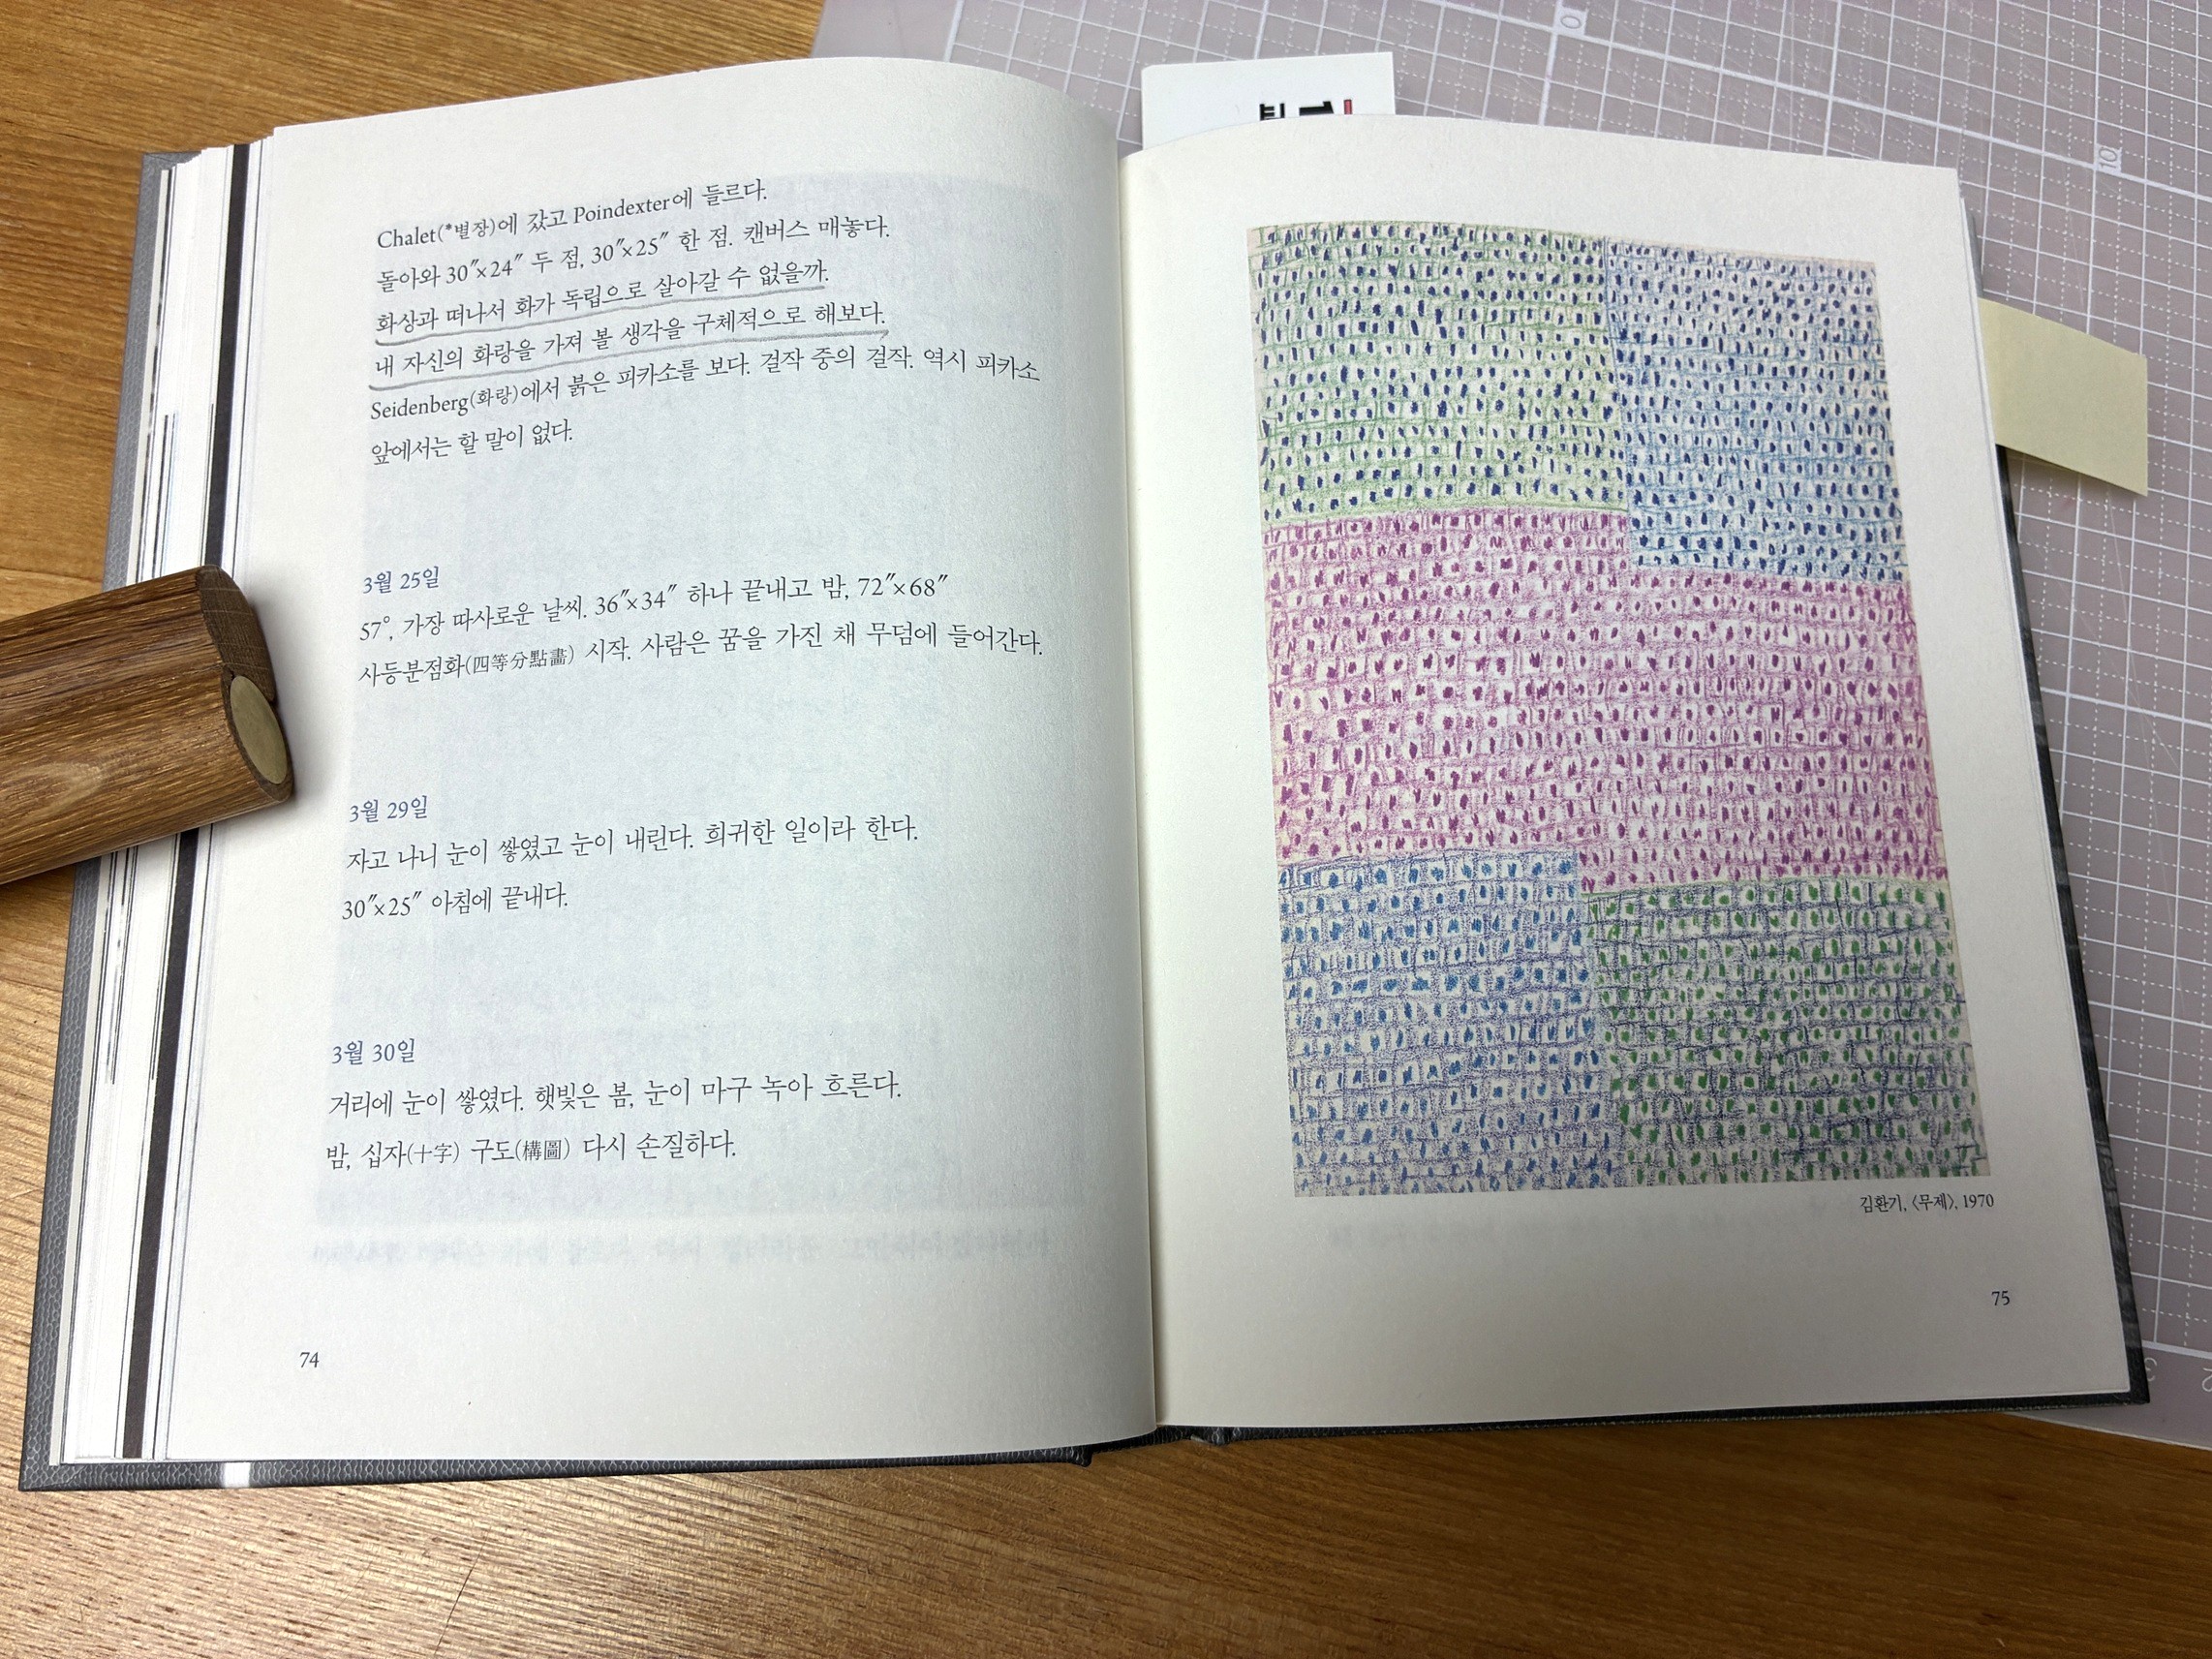 Chalet(*별장)에 갔고 Poindexter에 들르다.
돌아와 30″×24″ 두 점, 30″×25″ 한 점. 캔버스 매놓다.
화상과 떠나서 화가 독립으로 살아갈 수 없을까.
내 자신의 화랑을 가져 볼 생각을 구체적으로 해보다.
Seidenberg(화랑)에서 붉은 피카소를 보다. 걸작 중의 걸작. 역시 피카소
앞에서는 할 말이 없다.
3월 25일
57°, 가장 따사로운 날씨. 36″×34″ 하나 끝내고 밤, 72″×68″
사등분점화(四等分點畵) 시작. 사람은 꿈을 가진 채 무덤에 들어간다.
3월 29일
자고 나니 눈이 쌓였고 눈이 내린다. 희귀한 일이라 한다.
30″×25″ 아침에 끝내다.
3월 30일
거리에 눈이 쌓였다. 햇빛은 봄, 눈이 마구 녹아 흐른다.
밤, 십자(十字) 구도(構圖) 다시 손질하다.
74
김환기, 〈무제〉, 1970
75
10